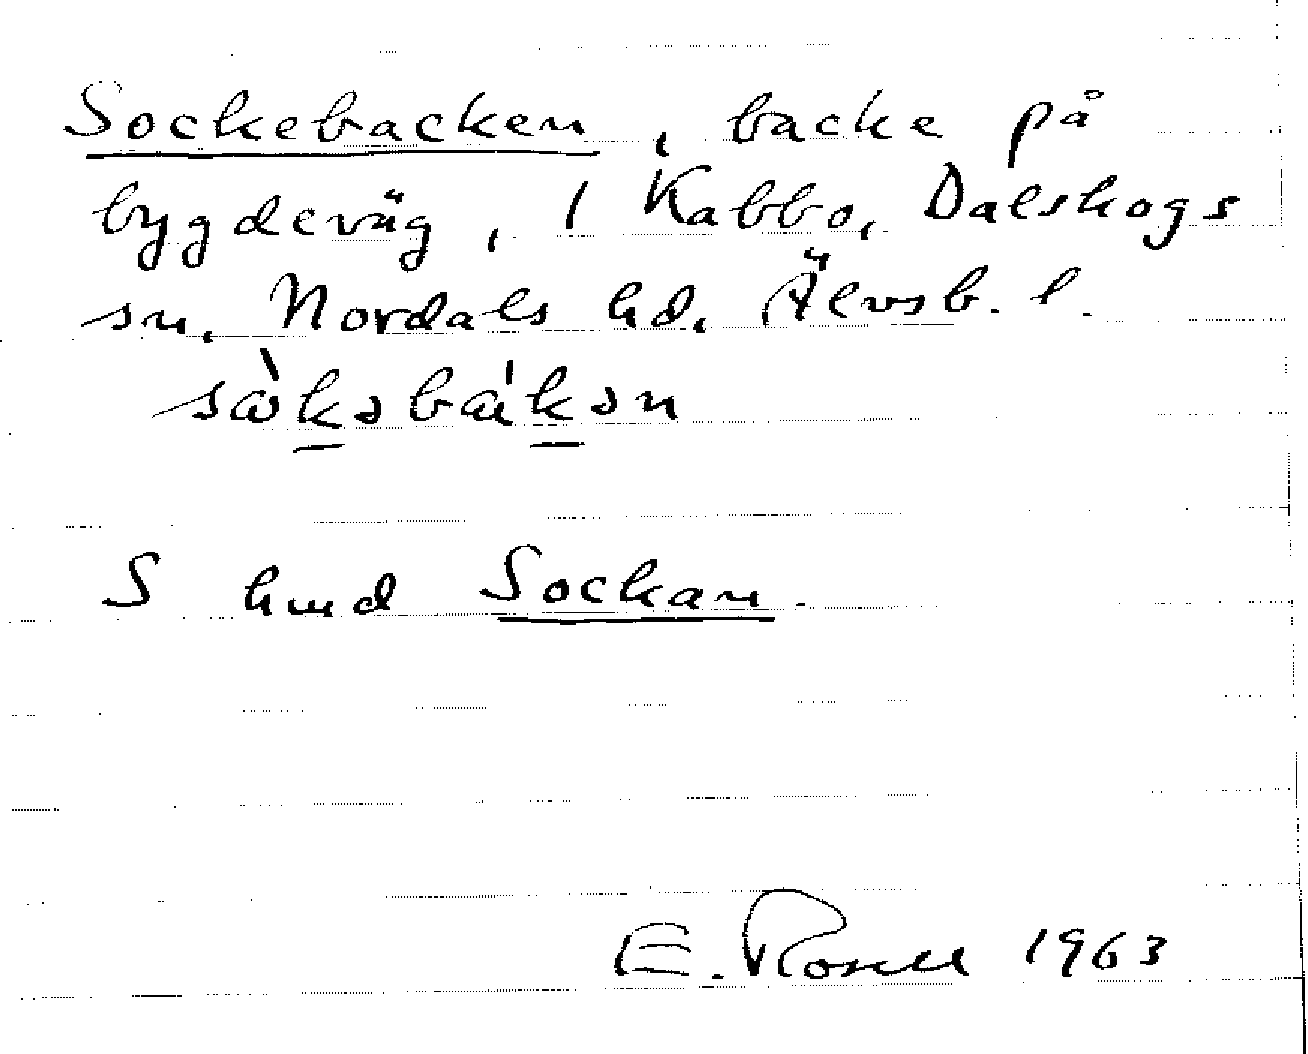 Sockebacken, backe på
bygdeväg, 1 Kabbo, Dalskogs
sn, Nordals hd, Älvsb. l.
sòkəbákən
S hmd Sockan.
E. Rosell 1963